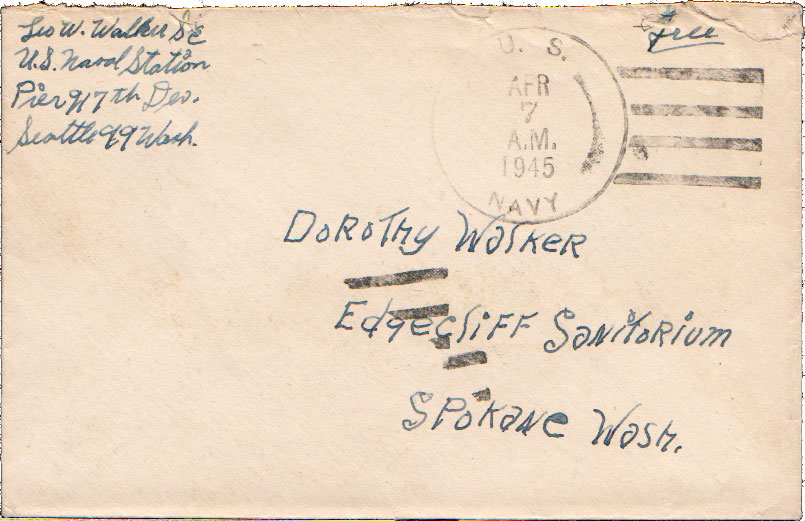 Leo W. Walker S2c
U.S. Naval Station
Pier 91 7th Dev.
Seattle 99 Wash.
Free
U. S.
APR
7
A.M.
1945
NAVY
Dorothy Walker
Edgecliff Sanitorium
Spokane Wash.